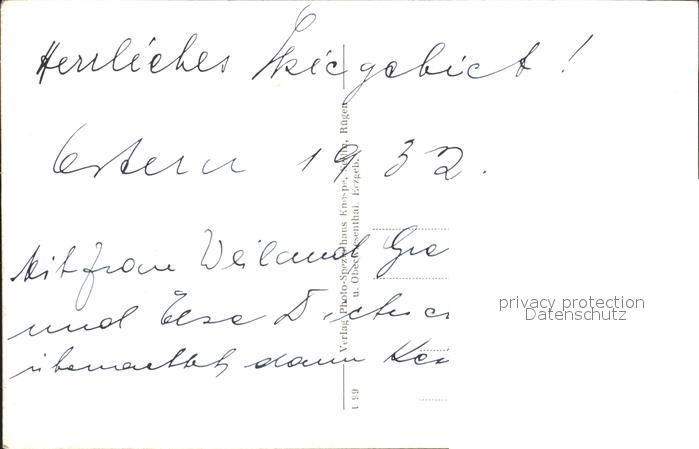 Herrliches Skigebiet !
Ostern 1932.
Mit Frau Weiland
und Else
übernachtet, dann
Verlag Photo-Spezialhaus Knospe, Sellin, Rügen
u. Oberwiesenthal, Erzgeb.
L 99
privacy protection
Datenschutz